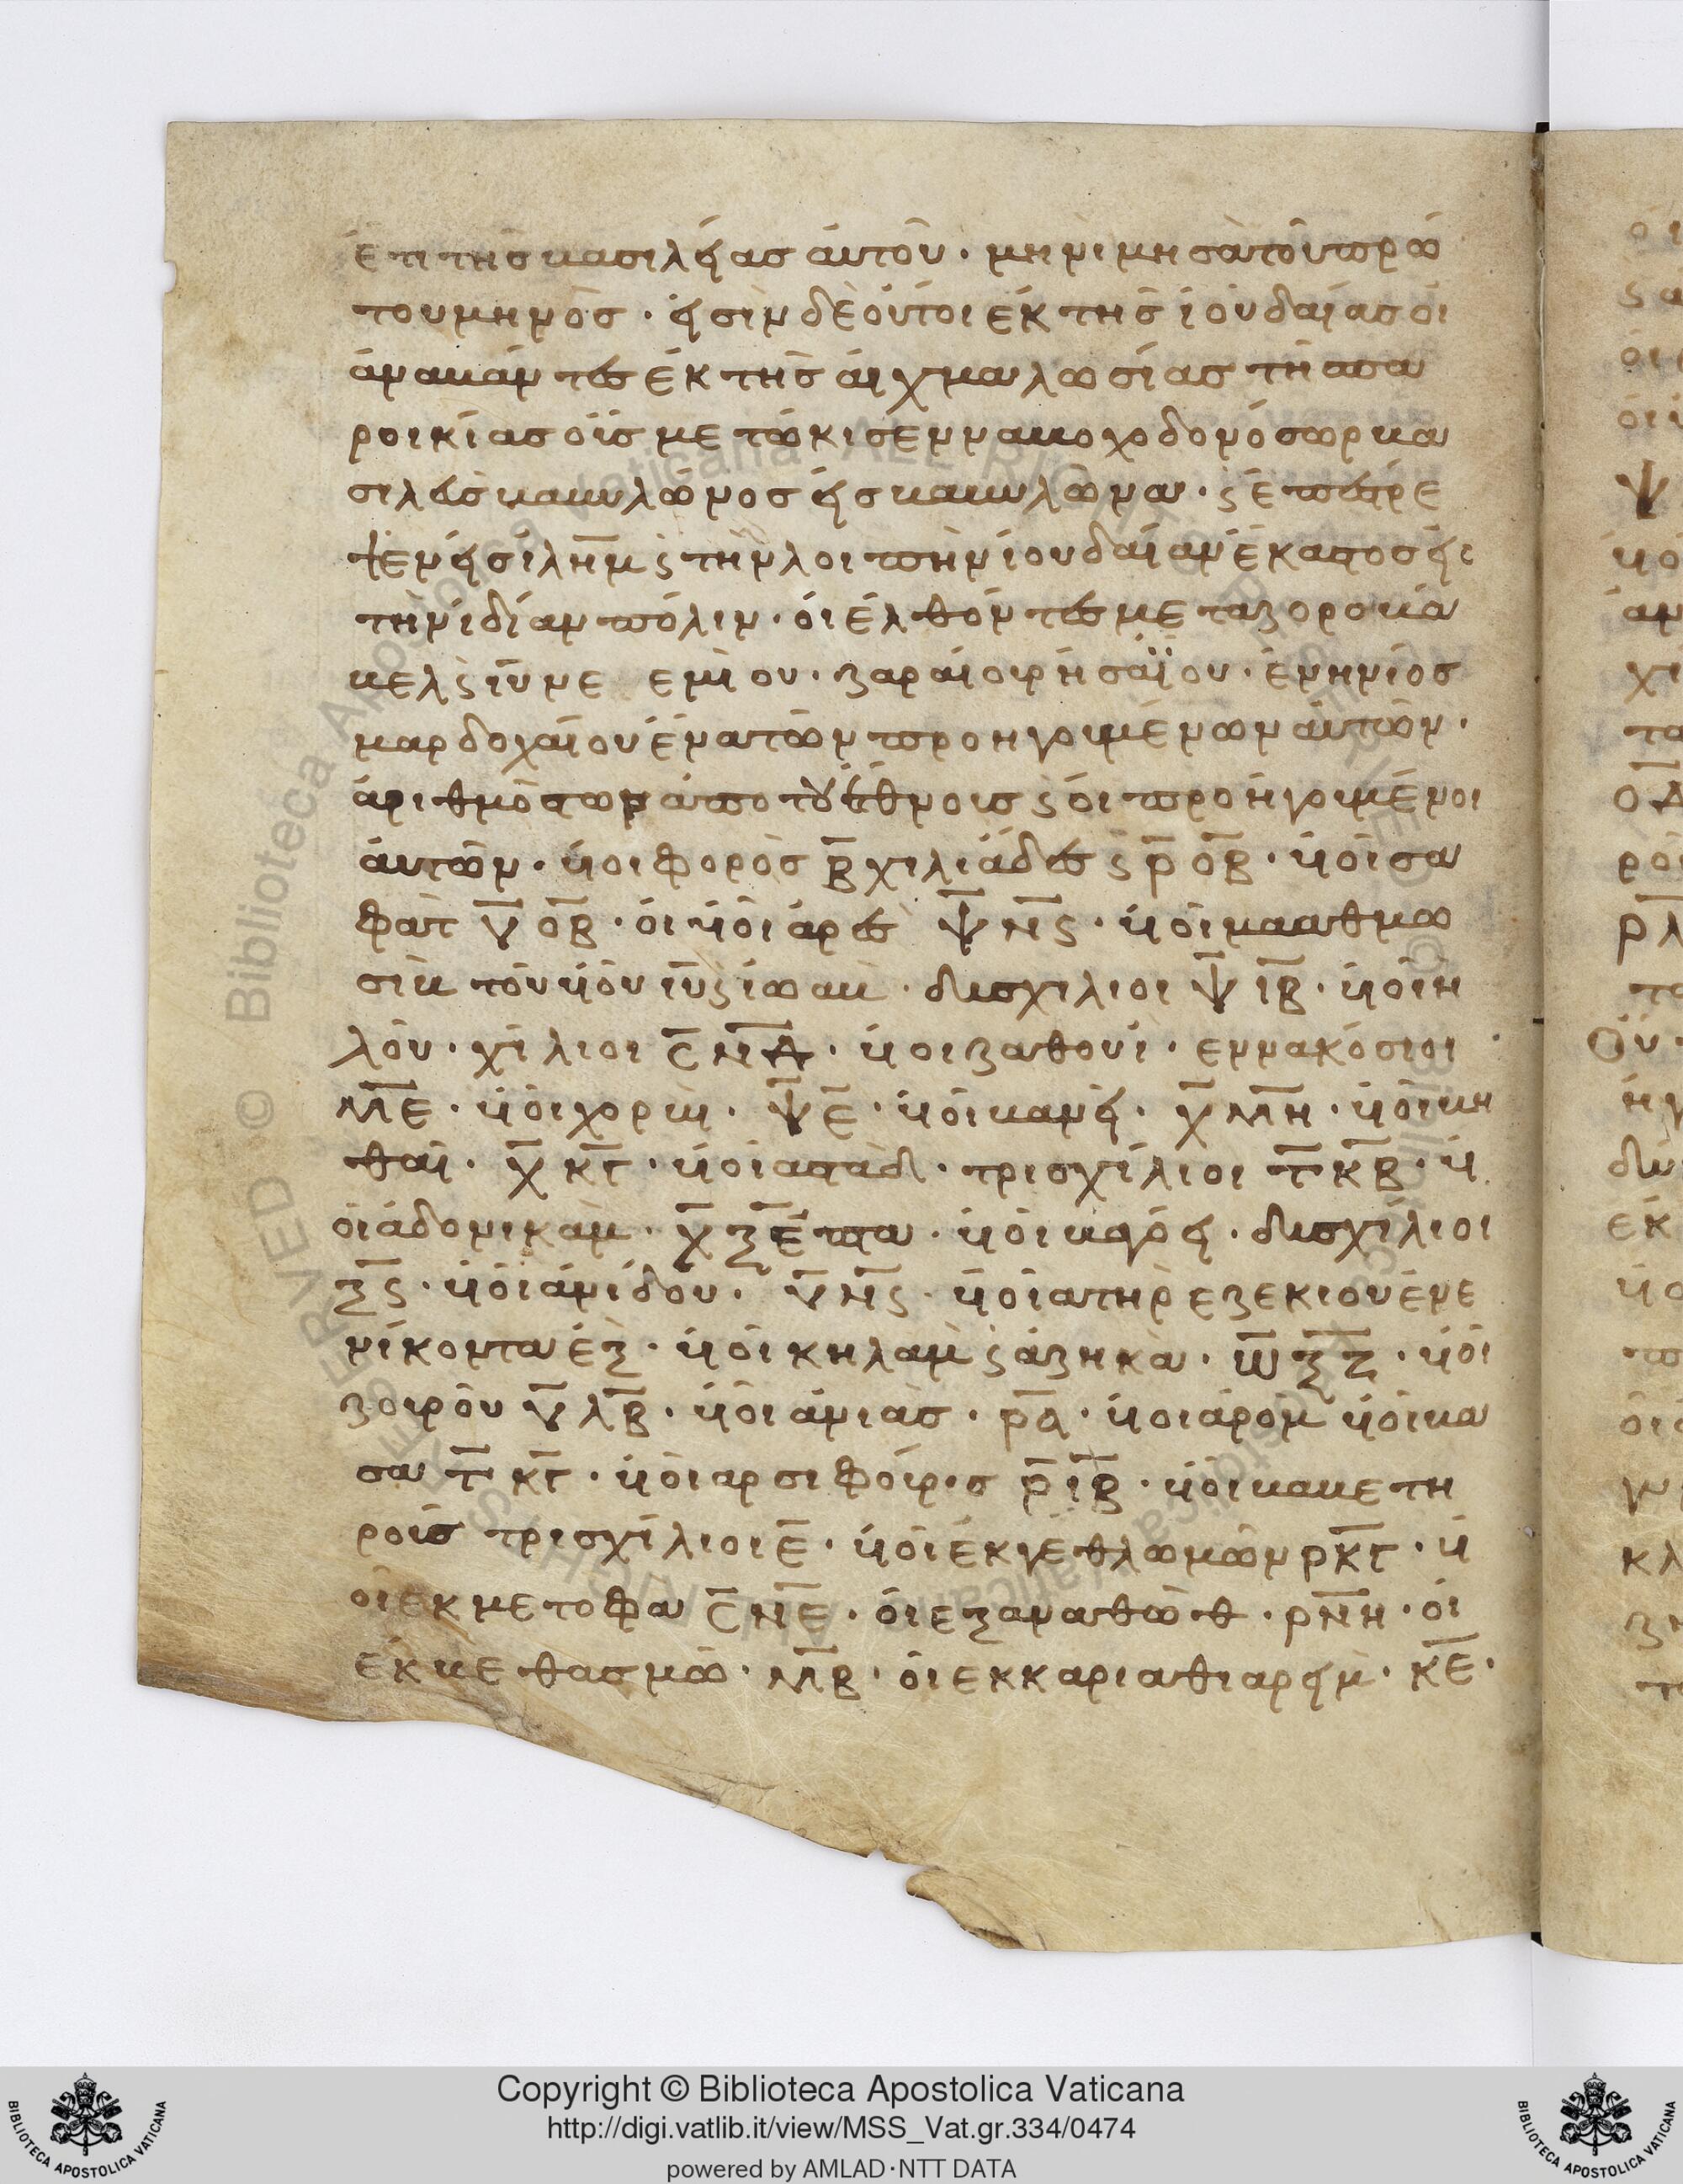 ἔτι τῆς βασιλείας αὐτοῦ · μηνὶ μησὰ τοῦ πρώ
του μηνὸς · εἰσὶν δὲ οὗτοι ἐκ τῆς ἰουδαίας οἱ
ἀναβάντες ἐκ τῆς αἰχμαλωσίας τῆς πα
ροικίας οὓς μετώκισεν ναβοχοδονόσωρ βα
σιλεὺς βαβυλῶνος εἰς βαβυλῶνα · ϛ ἐπέστρε
ψεν εἰς ἰλη̅μ ϛ τὴν λοιπὴν ἰουδαίαν ἕκαστος εἰς
τὴν ἰδίαν πόλιν · οἱ ἐλθόντες μετα ζοροβά
βελ ϛ ἰυ̅ νεεμίου · ζαραίου ῥησαΐου · ἐνηνίος
μαρδοχαίου ἐνατῶν προηγουμένων αὐτῶν ·
ἀριθμὸς των ἀπὸ τοῦ ἔθνους ϛ οἱ προηγουμένοι
αὐτῶν · υἱοι φορὸς β̅ χιλιάδες ϛ ρ̅ ο̅β̅ · υἱοὶ σα
φὰτ υ̅ ο̅β̅ · οἱ υἱοὶ ἀρὲς ψ̅ ν̅ϛ · υἱοὶ μααθμω
σὶβ τοῦ υἱοῦ ἰυ̅ ϛ ἰωαβ · δισχιλιοι ψ̅ ι̅β̅ · υἱοὶ ἠ
λοῦ · χίλιοι σ̅ ν̅δ̅ · υἱοι ζαθουί · εννακόσιοι
μ̅ε̅ · υἱοὶ χορβὲ · ψ̅ ε̅ · υἱοὶ βανεί · χ̅ μ̅η · υἱοὶ βη
θαί · χ̅ κ̅γ̅ · υἱοὶ ασταὸ · τρισχίλιοι τ̅ κ̅β̅ · υἱ
οἱ ἀδονικὰμ · χ̅ ξ̅ ἑπτα · υἱοὶ βαγόει · δισχίλιοι
ξ̅ϛ · υἱοὶ ἀνίδου · υ̅ ν̅ϛ · υἱοὶ ατὴρ εζεκιου ἐνε
νίκοντα ἕξ · υἱοὶ κηλὰμ ϛ ἀζηκὰ · ω̅ ξ̅ζ̅ · υἱοὶ
ζουροῦ υ̅ λ̅β̅ · υἱοὶ ἀνιὰς · ρ̅α̅ · υἱοι ἀρόμ υἱοὶ βα
σα τ̅ κ̅γ̅ · υἱοὶ αρσιφούρις ρ̅ ι̅β̅ · υἱοὶ βαβετη
ροῦς τρισχίλιοι ε̅ · υἱοὶ ἐκ γεθλωμῶν ρκ̅γ̅ · υἱ
οὶ εκ μετοφα σ̅ ν̅ε̅ · οἱ εξ αναθὼθ · ρν̅η · οἱ
ἐκ βεθασμῶ · μ̅β̅ · οἱ εκ καριαθιαρεὶμ · κ̅ε̅ ·
Copyright © Biblioteca Apostolica Vaticana
http://digi.vatlib.it/view/MSS_Vat.gr.334/0474
powered by AMLAD·NTT DATA
BIBLIOTECA APOSTOLICA VATICANA
BIBLIOTECA APOSTOLICA VATICANA